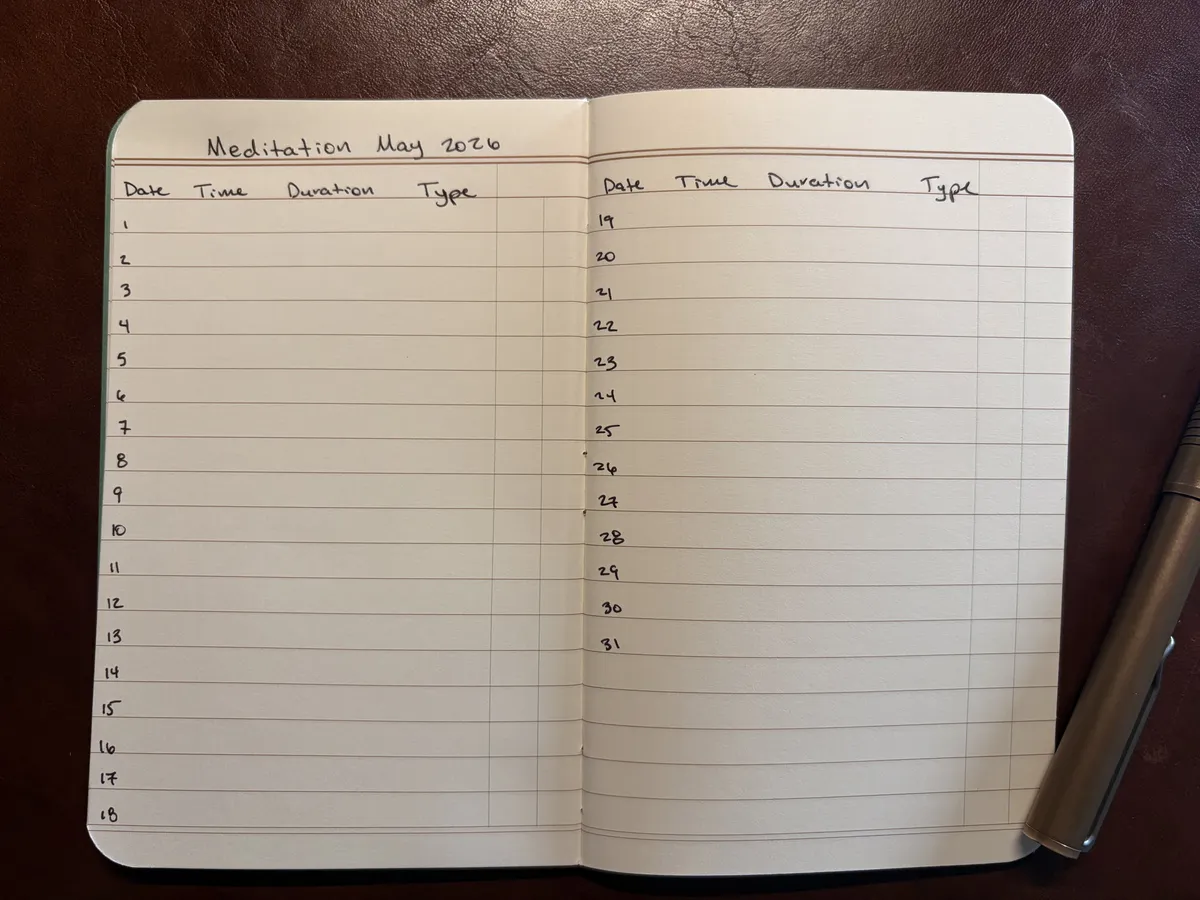 Meditation May 2026
Date Time Duration Type
1
2
3
4
5
6
7
8
9
10
11
12
13
14
15
16
17
18
Date Time Duration Type
19
20
21
22
23
24
25
26
27
28
29
30
31